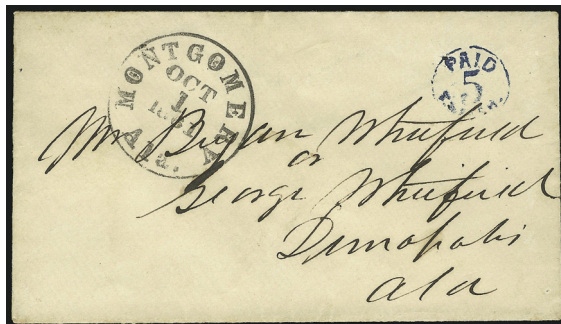 MONTGOMERY Ala.
OCT
1
1861
PAID
5
Mr Bryan Whitfield
or
George Whitfield
Demopolis
Ala